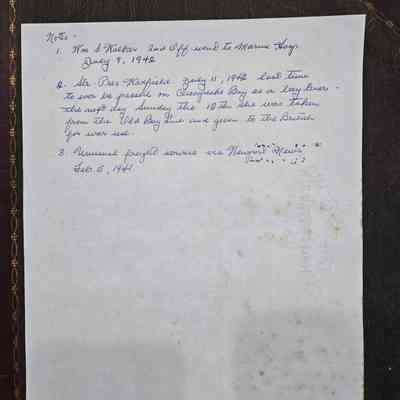 Notes -
1. Wm S Walker 2nd Off went to Marine Hosp.
July 9, 1942
2. Str. Pres. Warfield July 11, 1942 last time
to ever be present on Chesapeake Bay as a bay liner -
the next day Sunday the 12th she was taken
from the Old Bay Line and given to the British
for war use.
3. Unusual freight service via Newport News
Feb. 5, 1941.